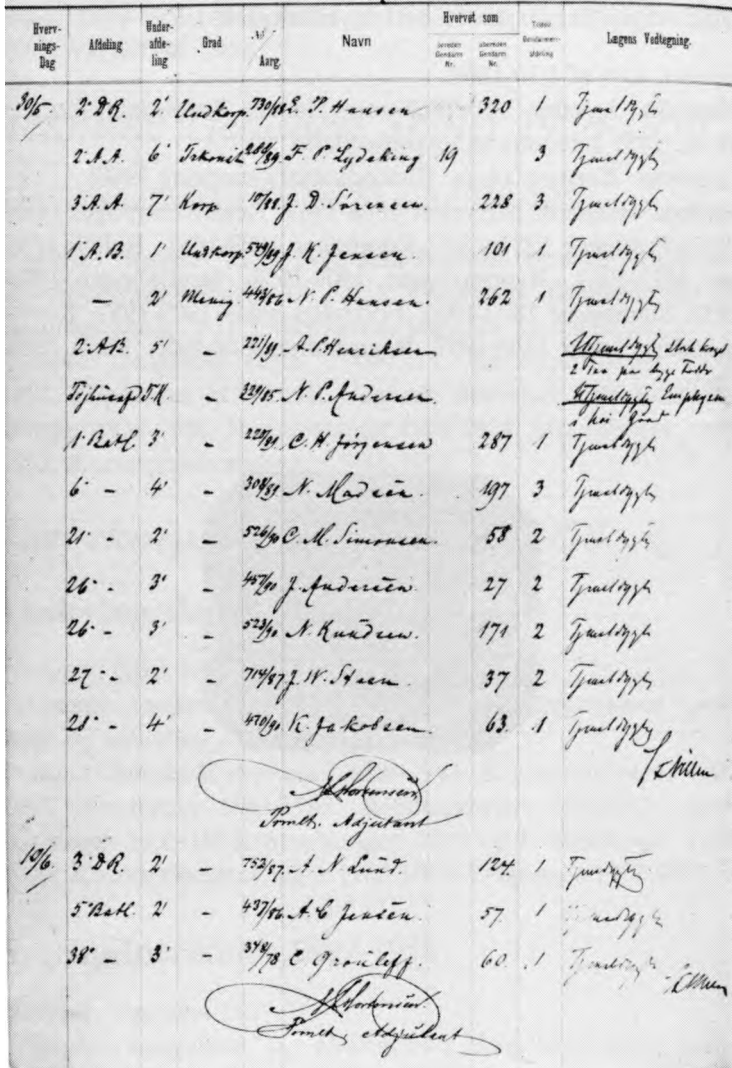 Hverv-
nings-
Dag
Afdeling
Under-
afde-
ling
Grad
Aarg.
Navn
Hvervet som
beredен Gendarm Nr.
uberedен Gendarm Nr.
Lægens Vedtegning.
30/5 2' D R. 2' Undkorp. 730/88 E. P. Hansen 320 1 Tjenstdygtig
2' A. A. 6' F. P. Lydeking 19 3 Tjenstdygtig
3' A. A. 7' Korp 10/88 J. D. Sørensen. 228 3 Tjenstdygtig
1' A. B. 1' Undkorp. 549/89 J. K. Jensen. 101 1 Tjenstdygtig
— 2' Menig 443/86 N. P. Hansen. 262 1 Tjenstdygtig
2' A.B. 5' - 221/89 A. P. Henriksen Utjenstdygtig
2 Tæer paa begge Fødder
- 239/85 N. P. Andersen. Utjenstdygtig
1' Batl. 3' - 220/89 C. H. Jørgensen 287 1 Tjenstdygtig
6' - 4' - 308/89 N. Madsen. 197 3 Tjenstdygtig
21' - 2' - 526/90 C. M. Simonsen. 58 2 Tjenstdygtig
26' - 3' - 457/90 J. Andersen. 27 2 Tjenstdygtig
26' - 3' - 523/90 N. Knudsen. 171 2 Tjenstdygtig
27' - 2' - 714/87 J. W. Steen. 37 2 Tjenstdygtig
28' - 4' - 470/90 K. Jakobsen. 63. 1 Tjenstdygtig
Adjutant
10/6 3' D R. 2' - 753/87 A N Lund. 124. 1 Tjenstdygtig
5' Batl. 2' - 437/86 A. C Jensen. 57. 1 Tjenstdygtig
38' - 3' - 348/78 C Grouleff. 60. 1 Tjenstdygtig
Adjutant